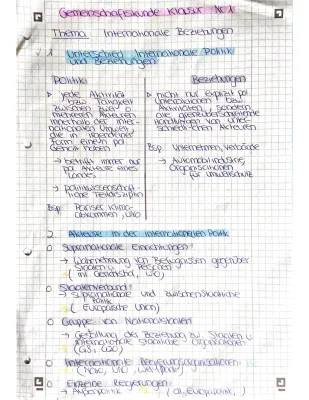 Gemeinschaftskunde Klausur Nr. 1
Thema: Internationale Beziehungen
1. Unterschied Internationale Politik
und Beziehungen
Politik
▷ jede Aktivität
bzw. Tätigkeit
zwischen zwei o.
mehreren Akteuren
innerhalb der inter-
nationalen Umwelt,
die in irgendeiner
Form einen pol.
Gehalt haben
→ betrifft immer nur
pol. Akteure eines
Landes
→ politikwissenschaft-
liche Teildisziplin
Bsp. Pariser Klima-
abkommen, UNO
Beziehungen
▷ nicht nur explizit pol.
Interaktionen bzw.
Aktivitäten, sondern
alle grenzüberschreitende
Handlungen von unter-
schiedlichen Akteuren
Bsp. Unternehmen, Verbände
→ Automobilindustrie,
Organisationen
für Umweltschutz
2. Akteure in der internationalen Politik
o Supranationale Einrichtungen
→ Wahrnehmung von Befugnissen gegenüber
Staaten u. Personen
(int. Gerichtshof, UNO)
o Staatenverbund
→ supranationale und zwischenstaatliche
Politik
(Europäische Union)
o Gruppe von Nationalstaaten
→ Gestaltung der Beziehung zw. Staaten u.
internationale Staatliche-Organisationen
o Internationale Regierungsorganisationen
o Einzelne Regierungen
→ Außenpolitik